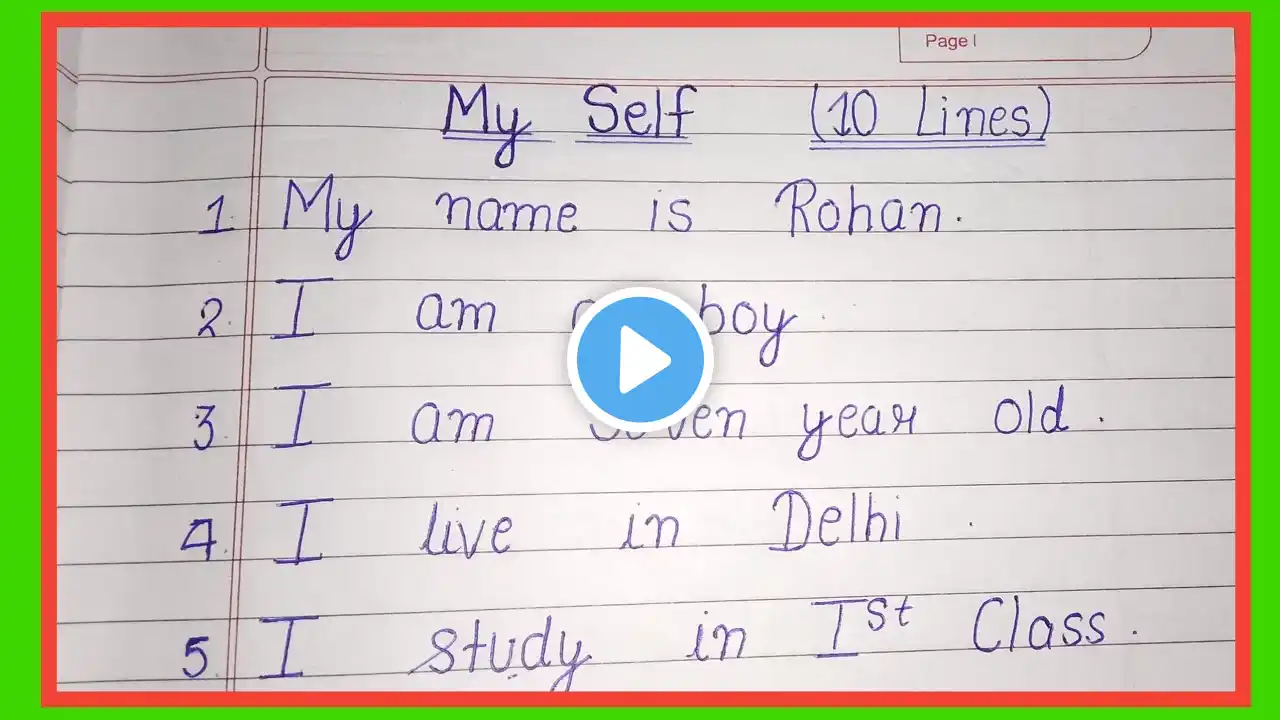 Page
My Self (10 Lines)
1. My name is Rohan.
2. I am boy.
3. I am seven year old.
4. I live in Delhi.
5. I study in Ist Class.